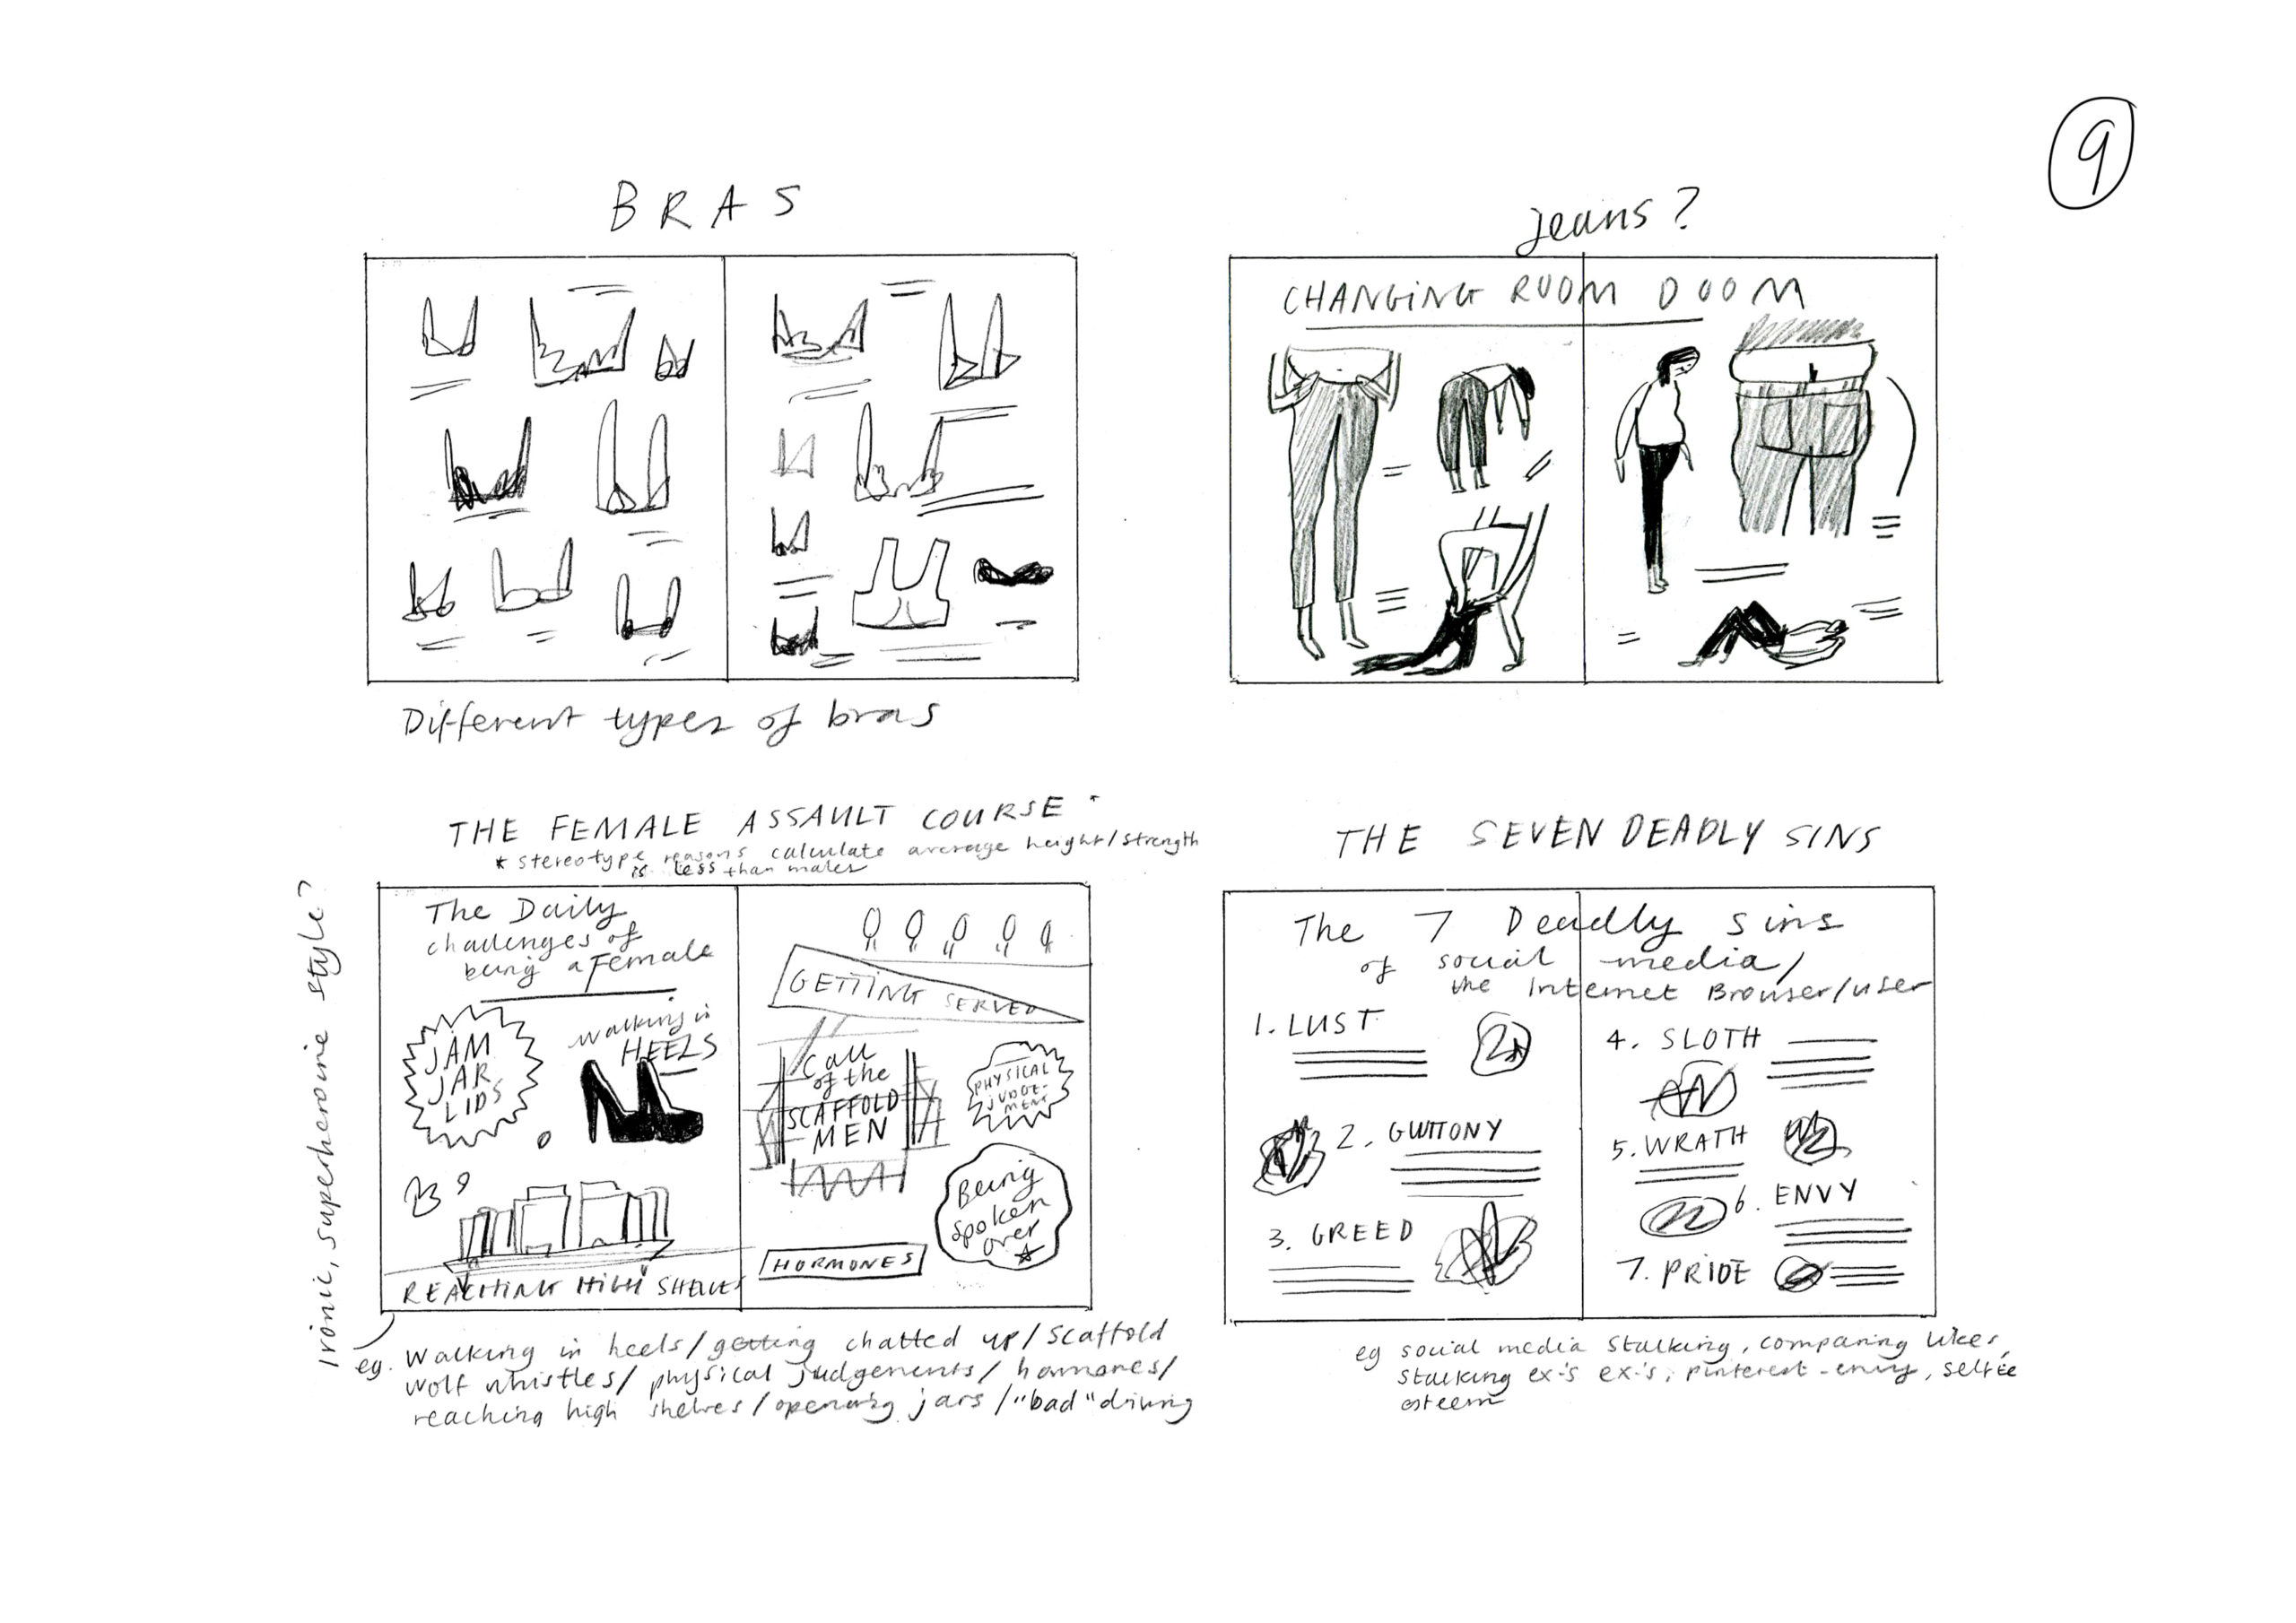 9
BRAS
Different types of bras
jeans?
CHANGING ROOM DOOM
THE FEMALE ASSAULT COURSE *
* stereotype reasons calculate average height/strength
is less than males
Ironic, superheroine style?
The Daily
challenges of
being a Female
JAM
JAR
LIDS
Walking in
HEELS
REACHING HIGH SHELVES
GETTING SERVED
Call
of the
SCAFFOLD
MEN
PHYSICAL
JUDGE-
MENT
Being
spoken
over
HORMONES
eg. Walking in heels/getting chatted up/scaffold
wolf whistles/physical judgements/hormones/
reaching high shelves/opening jars/"bad" driving
THE SEVEN DEADLY SINS
The 7 Deadly Sins
of social media/
the Internet Browser/user
1. LUST
2. GLUTTONY
3. GREED
4. SLOTH
5. WRATH
6. ENVY
7. PRIDE
eg social media stalking, comparing likes,
stalking ex's ex's, pinterest-envy, selfie
esteem